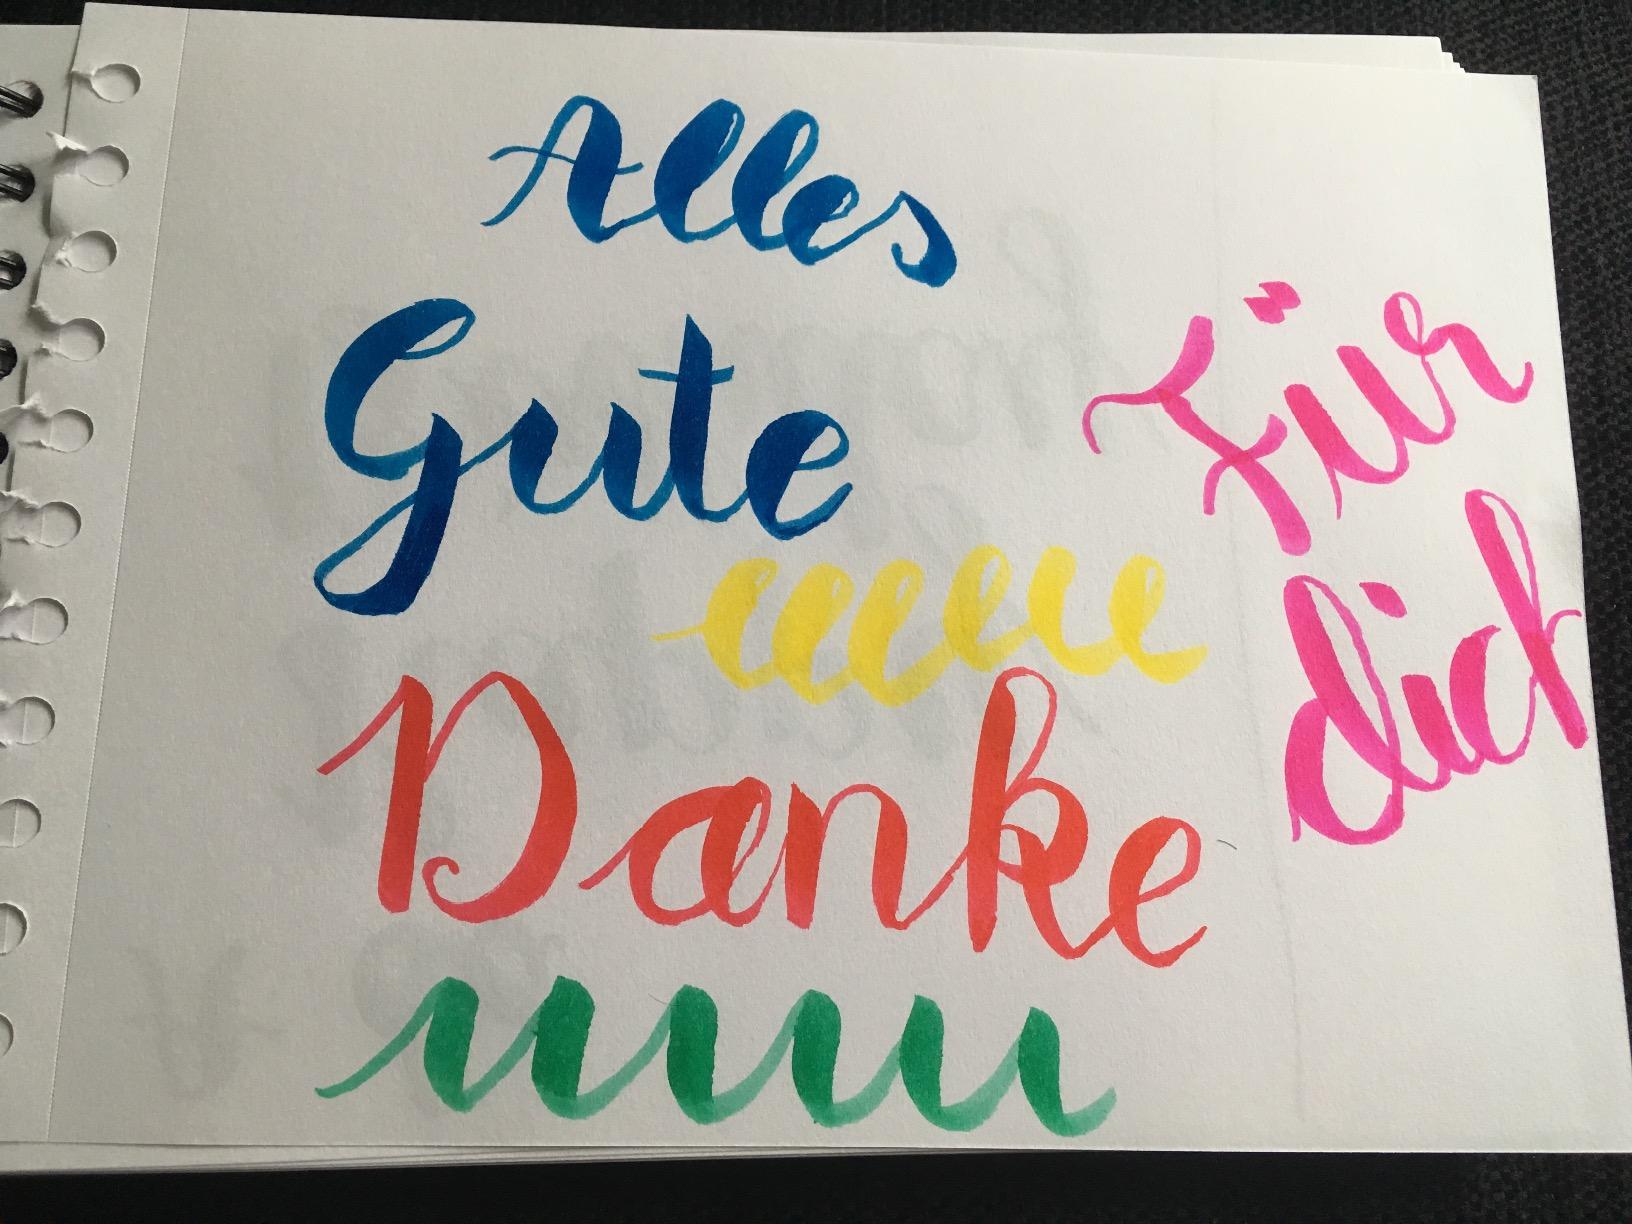 Alles
Gute
Danke
Für
dich